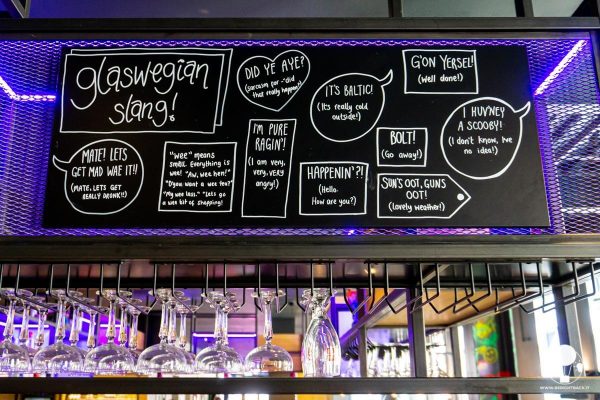 glaswegian
slang!
DID YE AYE?
(sarcasm for - "did
that really happen?")
ITS BALTIC!
(It's really cold
outside!)
G'ON YERSEL!
(Well done!)
I HUV'NEY
A SCOOBY!
(I don't know, I've
no idea!)
MATE! LETS
GET MAD WAE IT!!
(MATE, LETS GET
REALLY DRUNK!!)
"wee" means
small. Everything is
wee! "Aw, wee hen!"
"D'you want a wee tea?"
"My wee lass." "Lets go
a wee bit of shopping!
I'M PURE
RAGIN'!
(I am very,
very, VERY
angry!)
HAPPENIN'?!
(Hello.
How are you?)
BOLT!
(Go away!)
SUN'S OOT, GUNS
OOT!
(Lovely weather!)
WWW.BEBIGHTBACK.IT